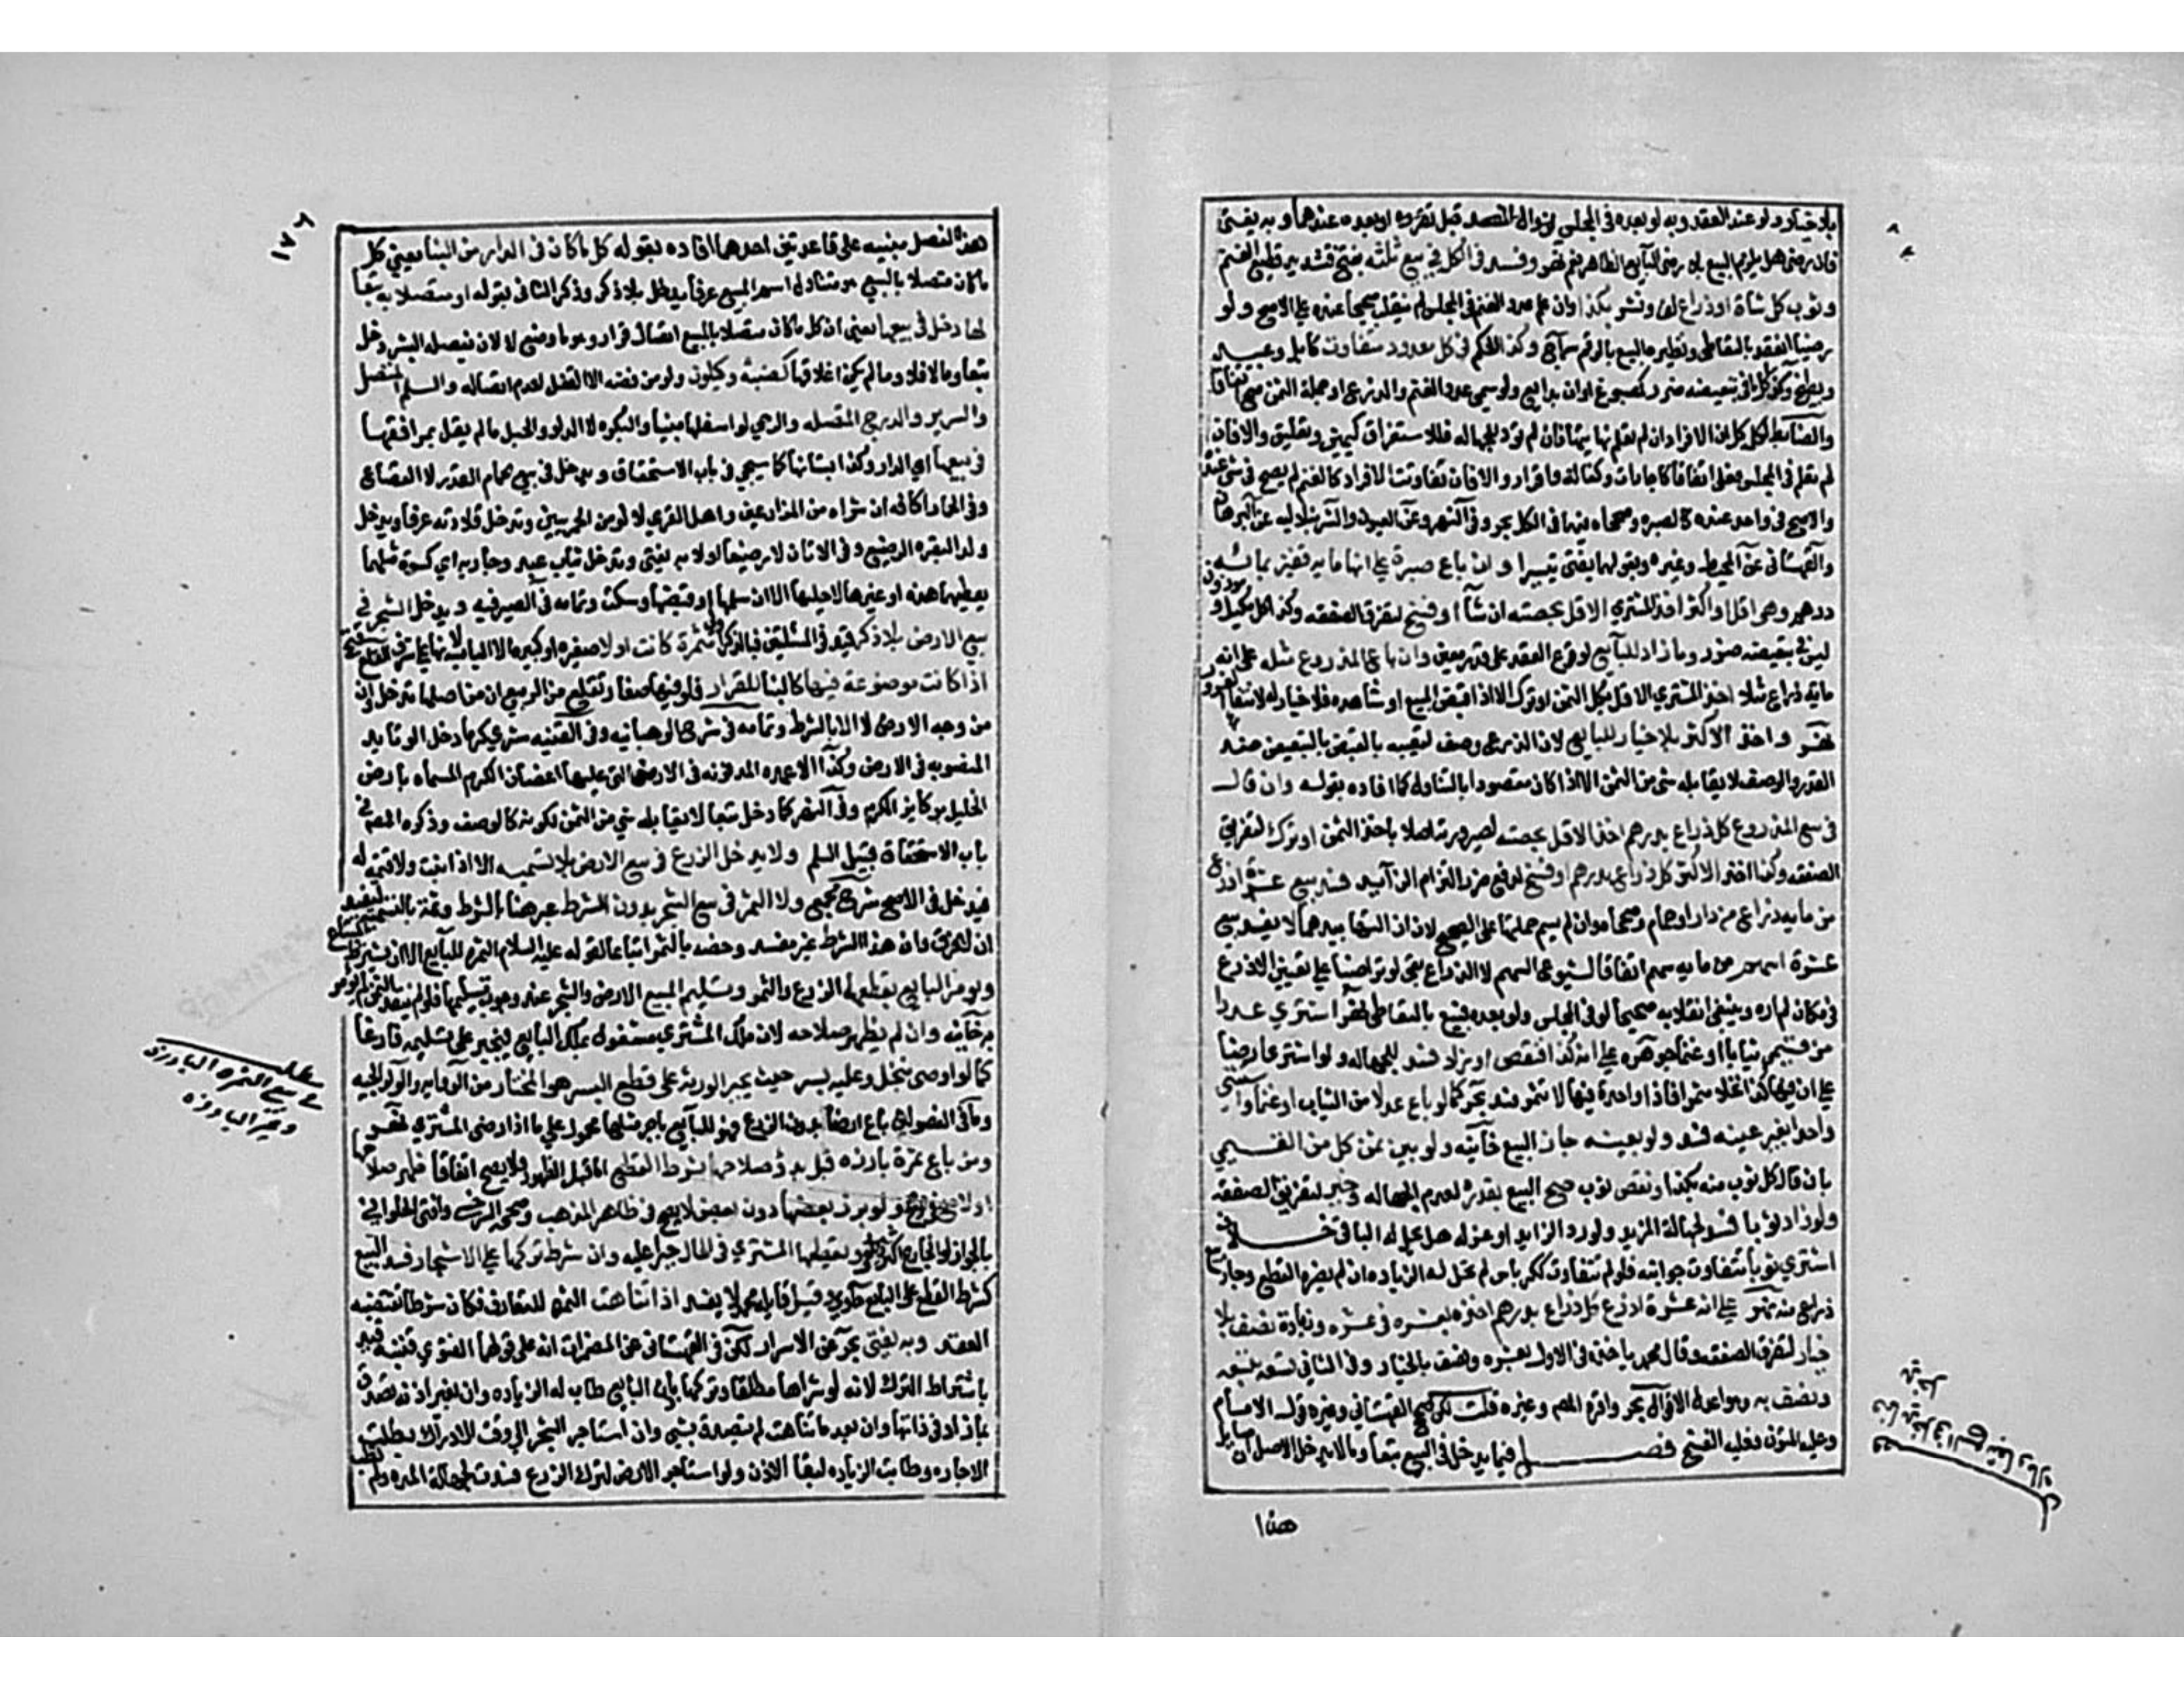 بلا خيار ولو عند العقد وبه لو بعده في المجلس لزوال المفسد قبل تقرره او بعده عندهما وبه يفتى
فان رضي هل يلزم البيع بلا رضى البايع الظاهر نعم نهر وفسد في الكل في بيع ثلثه بفتح فتشديد قطيع الغنم
وثوب كل شاة او ذراع لف ونشر بكذا وان علم عدد الغنم في المجلس لم ينقلب صحيحا عنده على الاصح ولو
رضيا انعقد بالتعاطي ونظيره البيع بالرقم سراج وكذا الحكم في كل معدود متفاوت كابل وعبيد
وبطيخ وكذا كل ما في تبعيضه ضرر كمصوغ اوان بدايع ولو سمي عدد الغنم والذرع او جملة الثمن صح اتفاقا
والضابط لكل كل ان الافراد ان لم تعلم نهايتها فان لم تؤد للجهاله فللاستغراق كيمين وتعليق والا فان
لم تعلم في المجلس فعلى الواحد اتفاقا كاجارات وكفاله واقرار والا فان تفاوتت الافراد كالغنم لم يصح في شي عنده
والا صح في واحد عنده كالصبره وصححاه فيهما في الكل بحر وفي النهر وعن العيون والشرنبلاليه عن البرهان
والقهستاني عن المحيط وغيره وبقولهما يفتى تيسيرا وان باع صبرة على انها مايه قفيز بمائة
درهم وهي اقل او اكثر اخذ المشتري الاقل بحصته ان شآ او فسخ لتفرق الصفقه وكذا كل مكيل و موزون
ليس في تبعيضه ضرر وما زاد للبايع لوقوع العقد على قدر معين وان باع المذروع مثله على انه
مايه ذراع مثلا اخذ المشتري الاقل بكل الثمن او ترك الا اذا قبض المبيع او شاهده فلا خيار له لانتفا الغرر
نهر واخذ الاكثر بلا خيار للبايع لان الذرع وصف لتعيبه بالتبعيض ضد
القدر والوصف لا يقابله شي من الثمن الا اذا كان مقصودا بالتناول كما افاده بقوله وان قال
في بيع المذروع كل ذراع بدرهم اخذ الاقل بحصته لصيرورته اصلا باخذ الثمن او ترك لتفرق
الصفقه وكذا اخذ الاكثر كل ذراع بدرهم او فسخ لدفع ضرر التزام الزايد فسد بيع عشرة اذرع
من مايه ذراع من دار او حمام وصححاه وان لم يسم جملتها على الصحيح لان ازالتها بيدهما لا يفسد بيع
عشرة اسهم من مايه سهم اتفاقا لشيوع السهم لا الذراع بقى لو تراضيا على تعيين الاذرع
في مكان لم اره وينبغي انقلابه صحيحا لو في المجلس ولو بعده فبيع بالتعاطي نهر اشترى عددا
من قيمي ثيابا او غنما جوهره على انه كذا فنقص او زاد فسد للجهاله ولو اشترى ارضا
على ان فيها كذا نخلا مثمرا فاذا واحدة فيها لا تثمر فسد بحر كما لو باع عدلا من الثياب او غنما واستثنى
واحدا بغير عينه فسد ولو بعينه جاز البيع خانيه ولو بين ثمن كل من القيمي
بان قال كل ثوب منه بكذا ونقص ثوب صح البيع بقدره لعدم الجهاله وخير لتفرق الصفقه
ولو زاد ثوبا فسد لجهالة المزيد ولو رد الزايد او عزله هل يحل له الباقي خلاف
اشترى ثوبا تتفاوت جوانبه فلو لم تتفاوت ككرباس لم تحل له الزياده ان لم يضره القطع وجاز بيع
ذراع منه نهر على انه عشرة اذرع كل ذراع بدرهم اخذه بعشره في عشره وزيادة نصف بلا
خيار لتفرق الصفقه وقال محمد ياخذه في الاول بعشره ونصف بالخيار وفي الثاني بتسعه
ونصف به وهو اعدل الاقوال بحر واقره المص وغيره قلت لكن صحح القهستاني وغيره قول الامام
وعليه المتون فعليه الفتوى فصل فيما يدخل في البيع تبعا وما لا يدخل الاصل ان مسايل
هذا
١٧٦
هذا الفصل مبنيه على قاعدتين احدهما افاده بقوله كل ما كان في الدار من البنا يعني كل
ما كان متصلا بالبيع هو متناول اسم المبيع عرفا يدخل بلا ذكر وذكر الثاني بقوله او متصلا به تبعا
لها دخل في بيعها يعني ان كل ما كان متصلا بالمبيع اتصال قرار وهو ما وضع لا لان يفصله البشر دخل
تبعا وما لا فلا وما لم يكن اغلاقها كضبه وكيلون ولو من فضه لا القفل لعدم اتصاله والسلم المتصل
والسرير والدرج المتصله والرحى لو اسفلها مبنيا والبكره لا الدلو والحبل ما لم يقل بمرافقها
في بيعها اي الدار وكذا بستانها كما سيجي في باب الاستحقاق ويدخل في بيع الحمام القدور لا القصاع
وفي الحمار اكافه ان شراه من المزارعين واهل القرى لا لو من الحمريين وتدخل قلادته عرفا ويدخل
ولد البقره الرضيع وفي الاتان لا رضيعا اولا به يفتى وتدخل ثياب عبد وجاريه اي كسوة مثلهما
يعطيهما هذه او غيرها لا حليها الا ان سلمها او قبضها وسكت وتمامه في الصيرفيه ويدخل الشجر في
بيع الارض بلا ذكر قيد في المسئلتين فبالذكر اولى مثمرة كانت او لا صغيره او كبيره الا اليابسه
اذا كانت موضوعة فيها كالبنا للقرار فلو فيها صغار تقلع زمن الربيع ان من اصلها تدخل وان
من وجه الارض لا الا بالشرط وتمامه في شرح الوهبانيه وفي القنيه شرى كرما دخل الوتايد
المنصوبه في الارض وكذا الاعمده المدفونه في الارض التي عليها اغصان الكرم المسماه بارض
الخليل بركايز الكرم وفي النهر كل ما دخل تبعا لا يقابله شي من الثمن لكونه كالوصف وذكره المص في
باب الاستحقاق قبيل السلم ولا يدخل الزرع في بيع الارض بلا تسميه الا اذا نبت ولا قيمه له
فيدخل في الاصح شرح مجمع ولا الثمر في بيع الشجر بدون الشرط عبر هنا بالشرط وثمة بالتسميه ليفيد
ان لا فرق وان هذا الشرط غير مفسد وخصه بالثمر اتباعا لقوله عليه السلام الثمره للبايع الا ان يشترط المبتاع
ويومر البايع بقطعهما الزرع والثمر وتسليم المبيع الارض والشجر عند وجوب تسليمهما فلو لم ينقد الثمن لم يومر به
خانيه وان لم يظهر صلاحه لان ملك المشتري مشغول بملك البايع فيجبر على تسليمه فارغا
كما لو اوصى بنخل وعليه بسر حيث يجبر الورثة على قطع البسر هو المختار من الروايه ولوالجيه
وما في الفصولين باع ارضا بدون الزرع فهو للبايع باجر مثلها محمول على ما اذا رضي المشتري نهر
ومن باع ثمرة بارزه قبل بدو صلاحها بشرط القطع اما قبل الظهور فلا يصح اتفاقا ظهر صلاحها
او لا صح ولو برز بعضها دون بعض لا يصح في ظاهر المذهب وصححه السرخسي وافتى الحلواني
بالجواز لو الخارج اكثر ويقطعها المشتري في الحال جبرا عليه وان شرط تركها على الاشجار فسد البيع
كشرط القطع على البايع حاوي وقيل قايله محمد لا يفسد اذا تناهت الثمره للتعارف فكان شرطا يقتضيه
العقد وبه يفتى بحر عن الاسرار لكن في القهستاني عن المضمرات انه على قولهما الفتوى فتنبه قيد
باشتراط الترك لانه لو شراها مطلقا وتركها باذن البايع طاب له الزياده وان بغير اذنه تصدق
بما زاد في ذاتها وان بعد ما تناهت لم يتصدق بشي وان استاجر الشجر الى وقت الادراك بطلت
الاجاره وطابت الزياده لبقا الاذن ولو استاجر الارض لترك الزرع فسدت لجهالة المده ولم تطب
في بيع الثمره البارزه
وغير البارزه